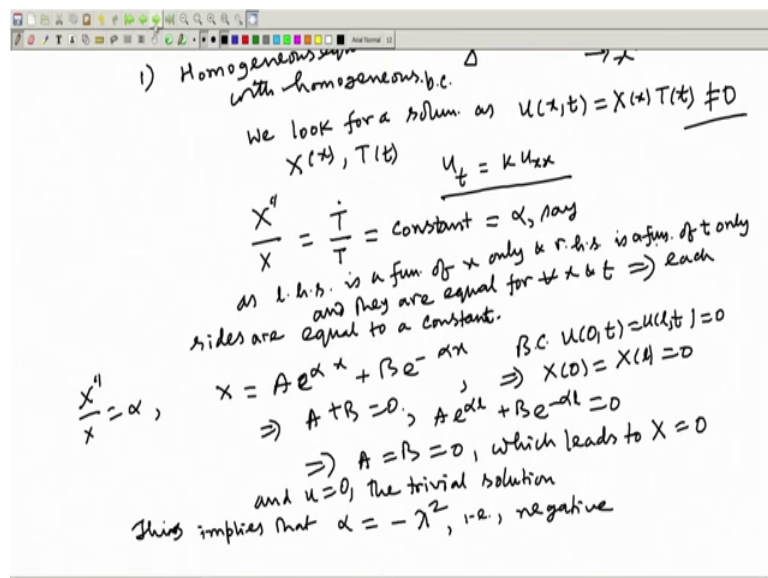 1) Homogeneous eqn Δ → x
with homogeneous b.c.
We look for a solun. as u(x,t) = X(x) T(t) ≠ 0
X(x), T(t) u_t = K u_xx
X''/X = Ṫ/T = constant = α, say
as l.h.s. is a fun. of x only & r.h.s. is a fun. of t only
and they are equal for ∀ x & t ⇒ each
sides are equal to a constant.
X''/X = α, X = A e^{αx} + B e^{-αx} B.C. U(0,t) = U(l,t) = 0
⇒ A + B = 0, , ⇒ X(0) = X(l) = 0
A e^{αl} + B e^{-αl} = 0
⇒ A = B = 0, which leads to X = 0
and u = 0, the trivial solution
This implies that α = -λ², i.e., negative